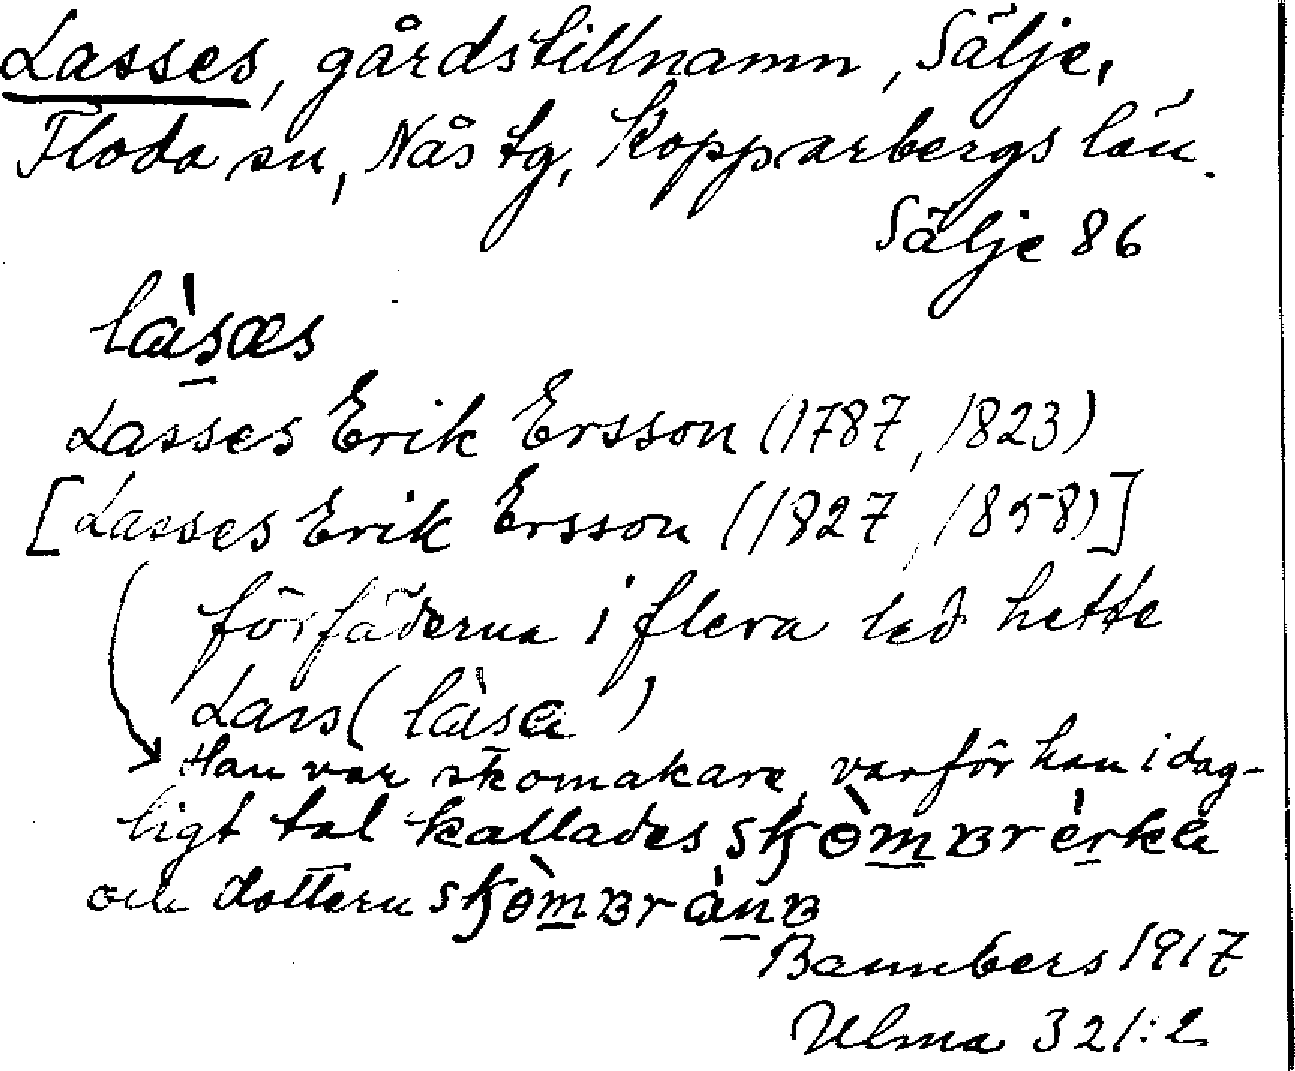 Lasses, gårdstillnamn, Sälje,
Floda sn, Nås tg, Kopparbergs län.
Sälje 86
làsæs
Lasses Erik Ersson (1787, 1823)
[Lasses Erik Ersson (1827, 1858)]
förfäderna i flera led hette
Lars (làsa)
Han var skomakare, varför han i dag-
ligt tal kallades
och dottern
Bannbers 1917
Ulma 321:2